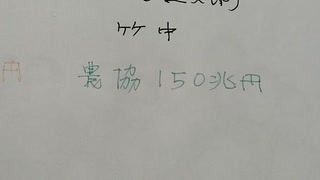 竹中
円
農協150兆円